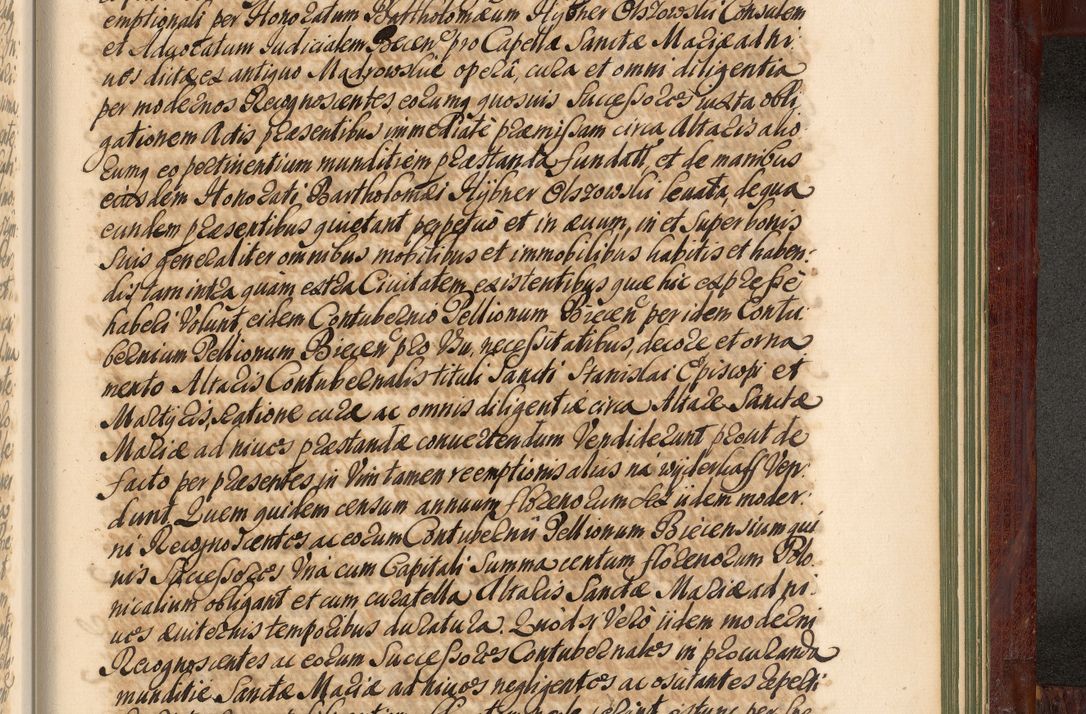 emptionali per Honoratum Bartholomæum Hÿbner Olszowski Consulem
et Advocatum Judicialem Biecen: pro Capella Sanctæ Mariæ ad ni:
ves dictæ ex antiquo Madrowskie opera, cura et omni diligentia
per modernos Recognoscentes eorumq quosvis Successores iuxta obli
gationem Actis præsentibus immediatè præmissam circa Altaris alio
rumq eo pertinentium munditiem præstanda fundatt, et de manibus
eiusdem Honorati Bartholomæi Hÿbner Olszowski levata, de qua
eundem præsentibus quietant perpetuò et in ævum, in et super bonis
suis generaliter omnibus mobilibus et immobilibus habitis et haben:
dis tam intra quàm extra Civitatem existentibus quæ hic expressè
haberi Volunt eidem Contubernio Pellionum Biecen: per idem Contu
bernium Pellionum Biecen: pro Usu, necessitatibus, decore et orna
mento Altaris Contubernalis tituli Sancti Stanislai Episcopi et
Martyris, ratione curæ ac omnis diligentiæ circa Altare Sanctæ
Mariæ ad nives præstandæ convertendum Vendiderunt prout de
facto per præsentes in Vim tamen reemptionis alias na wÿderkaff Ven:
dunt. Quem quidem censum annuum florenorum sex ijdem moder:
ni Recognoscentes ac eorum Contubernii Pellionum Biecensium qui
vis Successores Unà cum Capitali Summa centum florenorum Polo
nicalium obligant et cum curatella Altaris Sanctæ Mariæ ad ni:
ves æviternis temporibus duratura. Quod si Verò ijdem moderni
Recognoscentes ac eorum Successores Contubernales in procuranda
munditie Sanctæ Mariæ ad nives negligentes ac oscitantes reperti